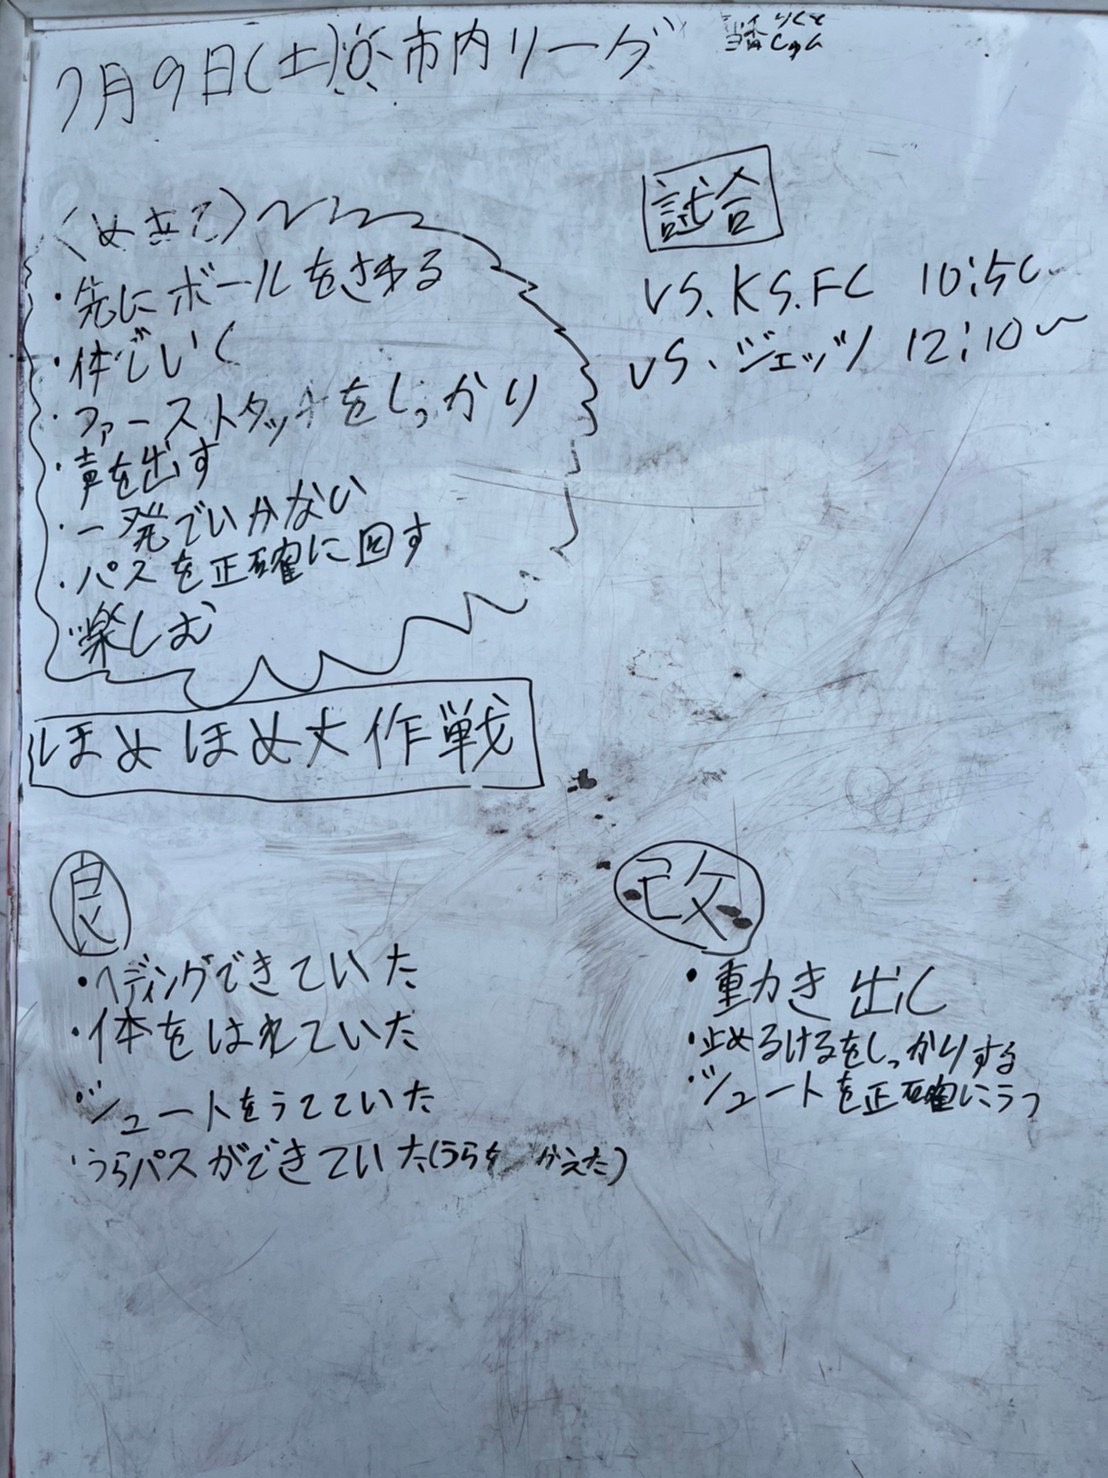 7月9日(土)市内リーグ
当番 りくと
じゅん
〈めあて〉
・先にボールをさわる
・体でいく
・ファーストタッチをしっかり
・声を出す
・一発でいかない
・パスを正確に回す
・楽しむ
ほめほめ大作戦
試合
VS.KS.FC 10:50~
VS.ジェッツ 12:10~
良
・ヘディングできていた
・体をはれていた
・シュートをうてていた
・うらパスができていた(うらを かえた)
改
・動き出し
・止めるけるをしっかりする
・シュートを正確にうつ